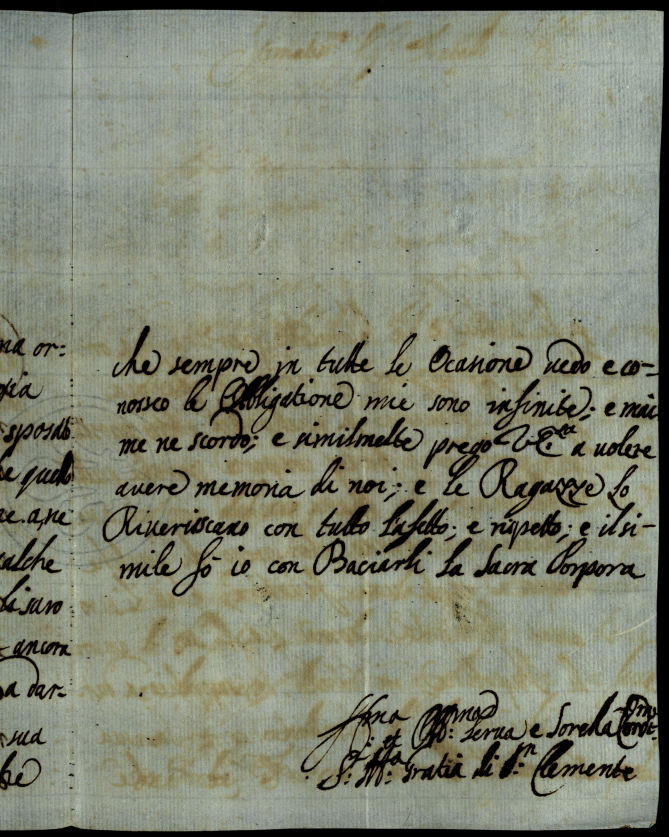 na or:
sposato
e quello
ne. a, ne
ancora
a dar-
sua
che sempre in tutte le Ocasione uedo e co-
nosco le Obbligatione mie sono infinite; e mai
me ne scordo; e similmelte prego V E.za a uolere
auere memoria di noi; e le Ragazze lo
Riueriscano con tutto lafetto; e rispetto; e il si-
mile fò io con Baciarli la Sacra Porpora
Serua e Sorella
S: M:a Gratia di S:n Clemente